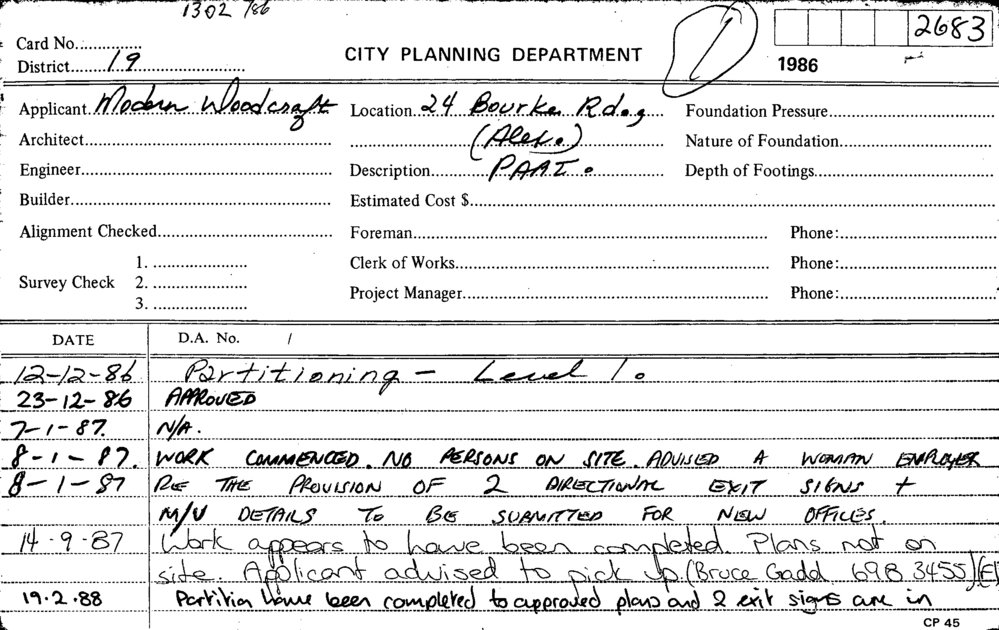 1302 /86
2683
Card No.
District 19
CITY PLANNING DEPARTMENT
1
1986
Applicant Modern Woodcraft Location 24 Bourke Rd., Foundation Pressure
Architect (Alex.) Nature of Foundation
Engineer Description PART. Depth of Footings
Builder Estimated Cost $
Alignment Checked Foreman Phone:
1. Clerk of Works Phone:
Survey Check 2.
3. Project Manager Phone:
DATE D.A. No. /
12-12-86 Partitioning - Level 1.
23-12-86 APPROVED
7-1-87. N/A.
8-1-87. WORK COMMENCED. NO PERSONS ON SITE. ADVISED A WOMAN EMPLOYER
8-1-87 RE THE PROVISION OF 2 DIRECTIONAL EXIT SIGNS +
M/V DETAILS TO BE SUBMITTED FOR NEW OFFICES.
14.9.87 Work appears to have been completed. Plans not on
site. Applicant advised to pick up. (Bruce Gadd 698 3455)
19.2.88 Partition have been completed to approved plans and 2 exit signs are in
CP 45